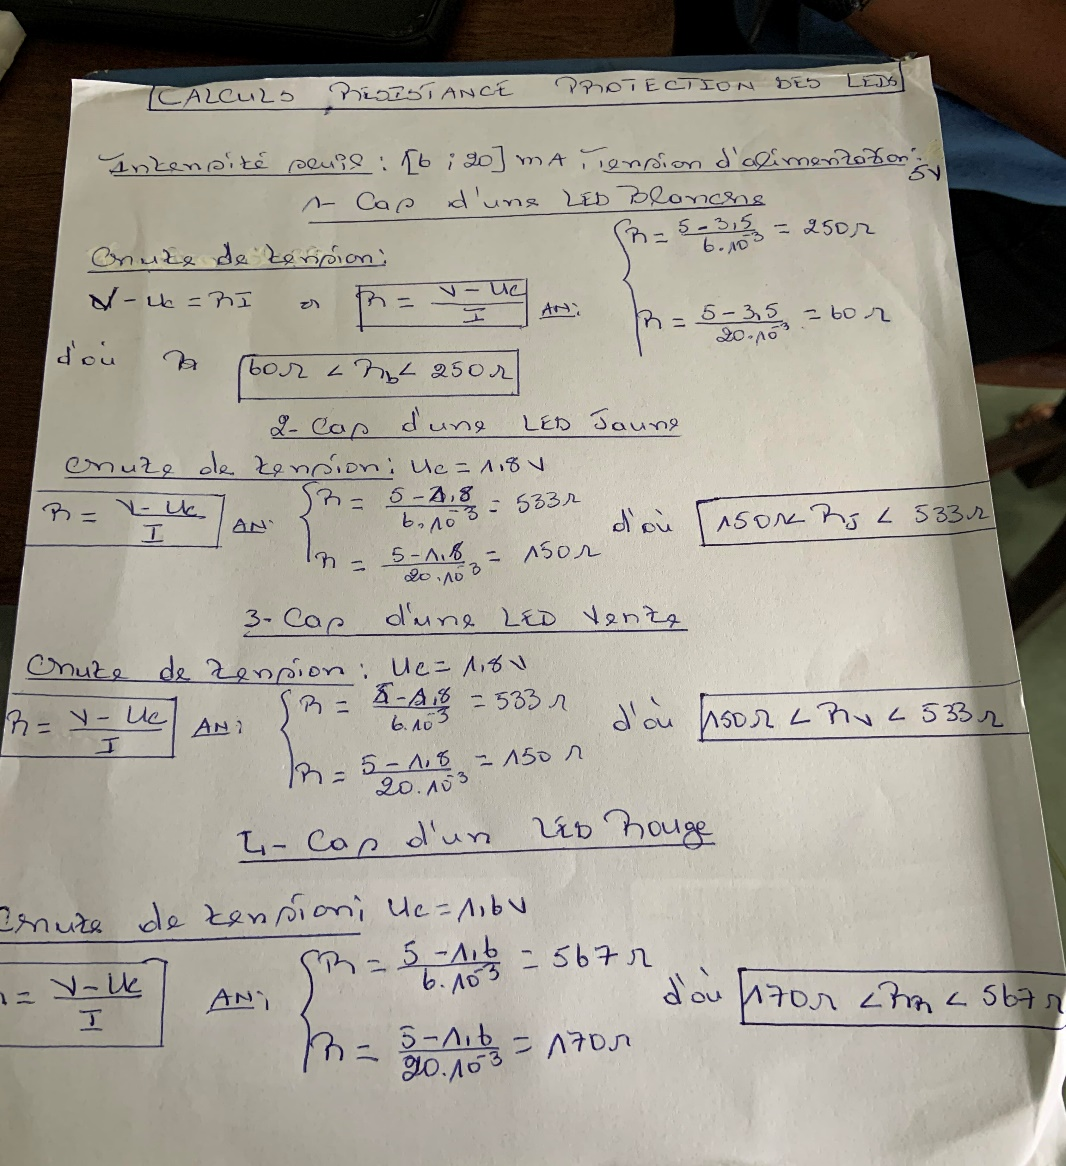 CALCULS RESISTANCE PROTECTION DES LEDS
Intensité seuil : [6 ; 20] mA ; Tension d'alimentation : 5V
1- Cas d'une LED Blanche
Chute de tension :
V - Uc = RI R = V - Uc / I AN: { R = 5 - 3,5 / 6.10^-3 = 250Ω
R = 5 - 3,5 / 20.10^-3 = 60Ω
d'où 60Ω < Rb < 250Ω
2- Cas d'une LED Jaune
Chute de tension : Uc = 1,8V
R = V - Uc / I AN: { R = 5 - 1,8 / 6.10^-3 = 533Ω
R = 5 - 1,8 / 20.10^-3 = 150Ω
d'où 150Ω < RJ < 533Ω
3- Cas d'une LED Verte
Chute de tension : Uc = 1,8V
R = V - Uc / I AN: { R = 5 - 1,8 / 6.10^-3 = 533Ω
R = 5 - 1,8 / 20.10^-3 = 150Ω
d'où 150Ω < Rv < 533Ω
4- Cas d'un LED Rouge
Chute de tension : Uc = 1,6V
R = V - Uc / I AN: { R = 5 - 1,6 / 6.10^-3 = 567Ω
R = 5 - 1,6 / 20.10^-3 = 170Ω
d'où 170Ω < Rr < 567Ω